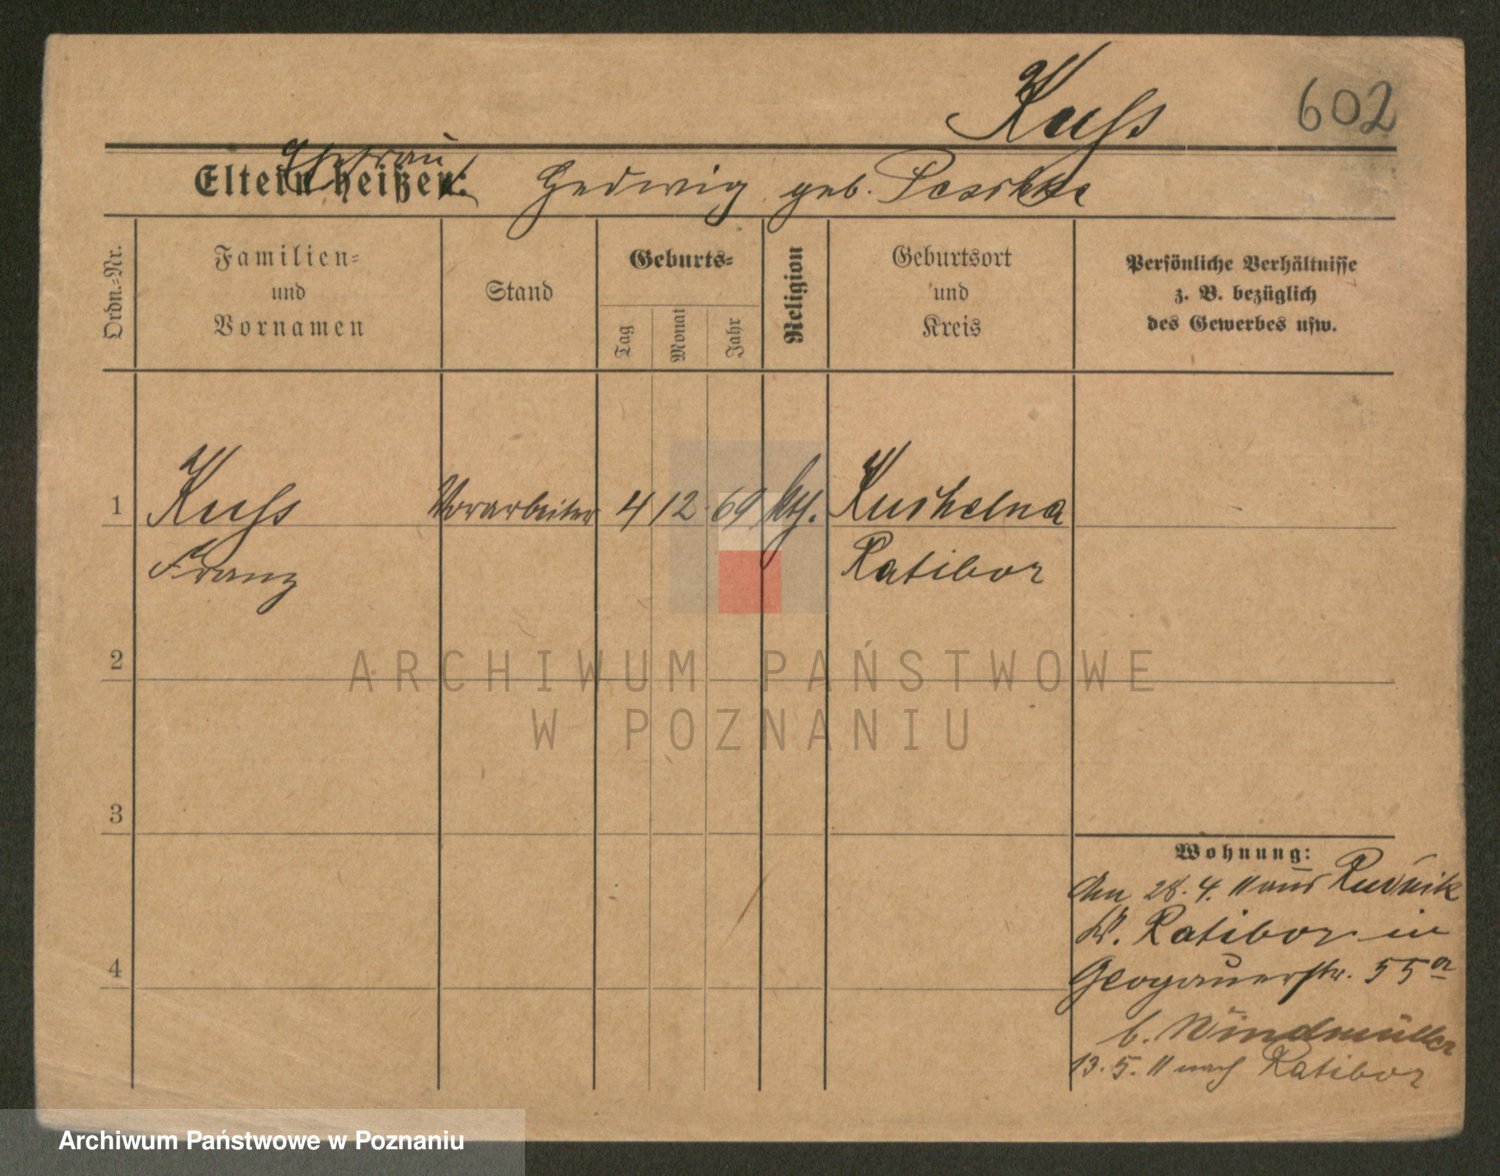 Kuss
602
Ehefrau
Eltern heißen: Hedwig geb.
Ordn.-Nr.
Familien-
und
Vornamen
Stand
Geburts-
Tag
Monat
Jahr
Religion
Geburtsort
und
Kreis
Persönliche Verhältnisse
z. B. bezüglich
des Gewerbes usw.
1
Kuss Vorarbeiter 4 12 69 kth. Kuchelna
Franz Ratibor
2
3
4
Wohnung:
Am 28.4.11 aus Rudnik
Kr. Ratibor in
Glogauerstr. 55a
b. Windmüller
13.5.11 nach Ratibor
ARCHIWUM PAŃSTWOWE
W POZNANIU
Archiwum Państwowe w Poznaniu